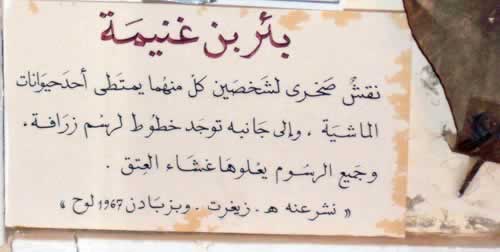 بئر بن غنيمة
نقش صخرى لشخصين كل منهما يمتطى أحد حيوانات
الماشية . وإلى جانبه توجد خطوط لرسم زرافة .
وجميع الرسوم يعلوها غشاء العتق .
" نشر عنه هـ . زيغرت . ويزبادن 1967 لوح "